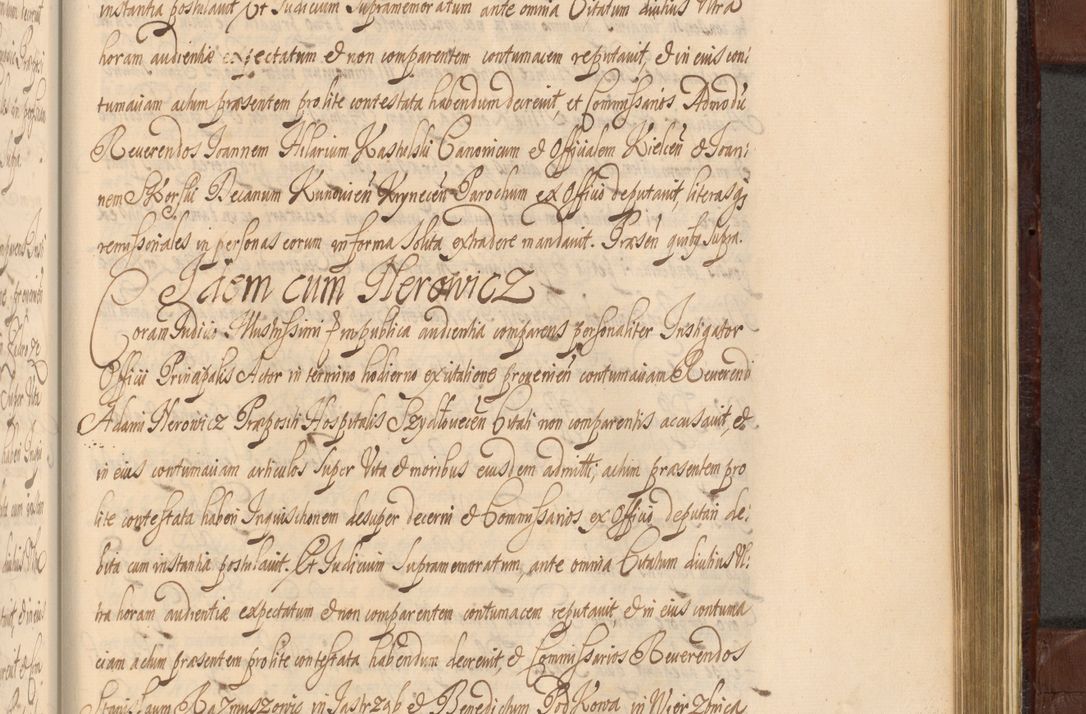 instantia postulavit Et Judicium supramemoratum ante omnia Citatum diutius Ultra
horam audientiæ expectatum & non comparentem contumacem reputavit, & in eius con¡
tumaciam actum præsentem pro lite contestata habendum decrevit, et Commissarios Admodũ
Reverendos Joannem Hilarium Kashelski Canonicum & Officialem Kielceñ & Joan¡
nem Skorski Decanum Kunovieñ Kryneceñ Parochum ex Officio deputavit, literasq3
remissoriales in personas eorum in forma solita extradere mandavit. Præseñ quibq supra.
Idem cum Nerowicz
Coram Judicio Illustrissimi & in publica audientia comparens personaliter Instigator
Officii Principalis Actor in termino hodierno ex citatione provenieñ contumaciam Reverendi
Adami Nerowicz Præpositi Hospitalis Szydłovieceñ Citati non comparentis accusavit, et
in eius contumaciam articulos super Vita & moribus eiusdem admitti, actum præsentem pro
lite contestata haberi Inquisitionem desuper decerni & Commissarios ex Officio deputari de¡
bita cum instantia postulavit. Et Judicium supramemoratum, ante omnia Citatum diutius Ul¡
tra horam audientiæ expectatum & non comparentem contumacem reputavit, & in eius contuma
ciam actum præsentem pro lite contestata habendum decrevit, & Commissarios Reverendos
Stanislaum Razmuszowic in Jastrząb & Benedictum Podkowa in Wierzbica